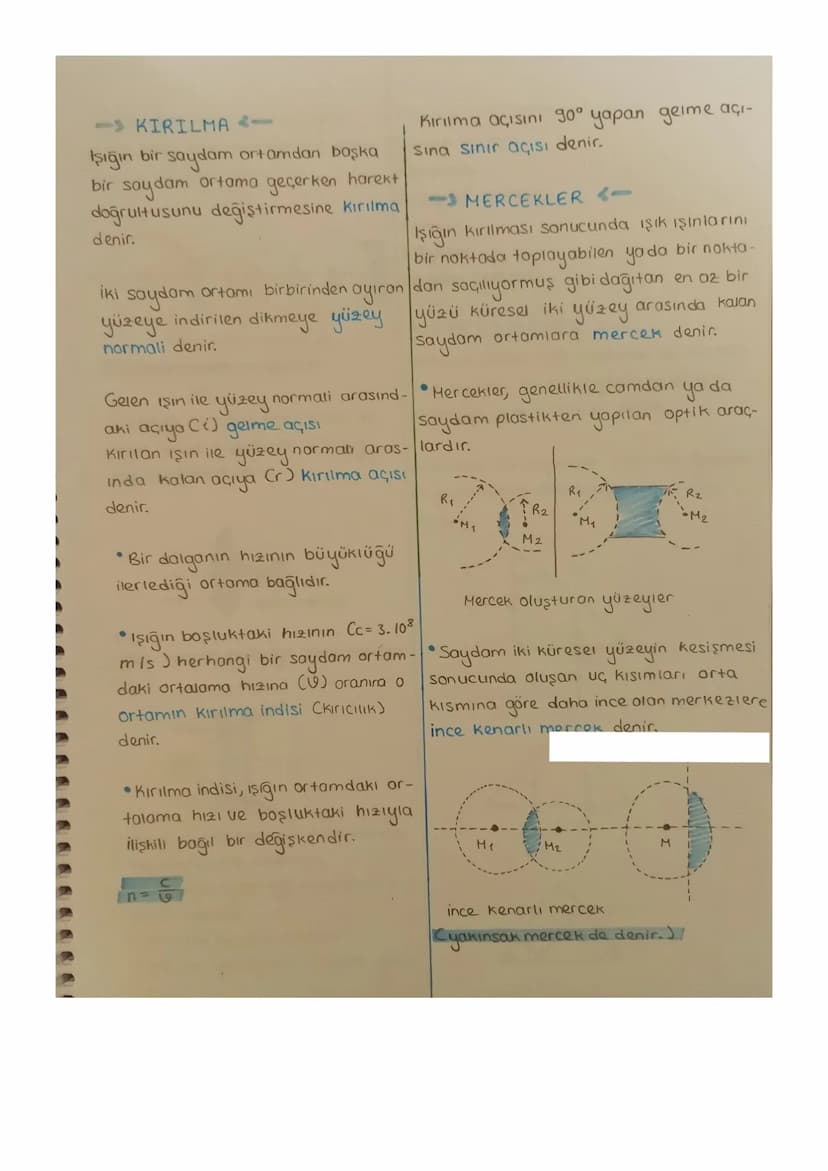 KIRILMA
Işığın bir saydam ortamdan başka
bir saydam ortama geçerken harekt
doğrultusunu değiştirmesine kırılma
denir.
İki saydam ortamı birbirinden ayıran
yüzeye indirilen dikmeye yüzey
normali denir.
Gelen ışın ile yüzey normali arasınd-
aki açıya (i) gelme açısı
Kırılan ışın ile yüzey normali aras-
ında kalan açıya (r) kırılma açısı
denir.
• Bir dalganın hızının büyüklüğü
ilerlediği ortama bağlıdır.
• Işığın boşluktaki hızının (c= 3.10⁸
m/s) herhangi bir saydam ortam-
daki ortalama hızına (ϑ) oranına o
ortamın kırılma indisi (kırıcılık)
denir.
• Kırılma indisi, ışığın ortamdaki or-
talama hızı ve boşluktaki hızıyla
ilişkili bağıl bir değişkendir.
n = c/ϑ
Kırılma açısını 90° yapan gelme açı-
sına sınır açısı denir.
MERCEKLER
Işığın kırılması sonucunda ışık ışınlarını
bir noktada toplayabilen yada bir nokta-
dan saçılıyormuş gibi dağıtan en az bir
yüzü küresel iki yüzey arasında kalan
saydam ortamlara mercek denir.
• Mercekler, genellikle camdan ya da
saydam plastikten yapılan optik araç-
lardır.
R1 M1 R2 M2
R1 M1 R2 M2
Mercek oluşturan yüzeyler
• Saydam iki küresel yüzeyin kesişmesi
sonucunda oluşan uç kısımları orta
kısmına göre daha ince olan merkezlere
ince kenarlı mercek denir.
M1 M2 M
ince kenarlı mercek
(yakınsak mercek de denir.)